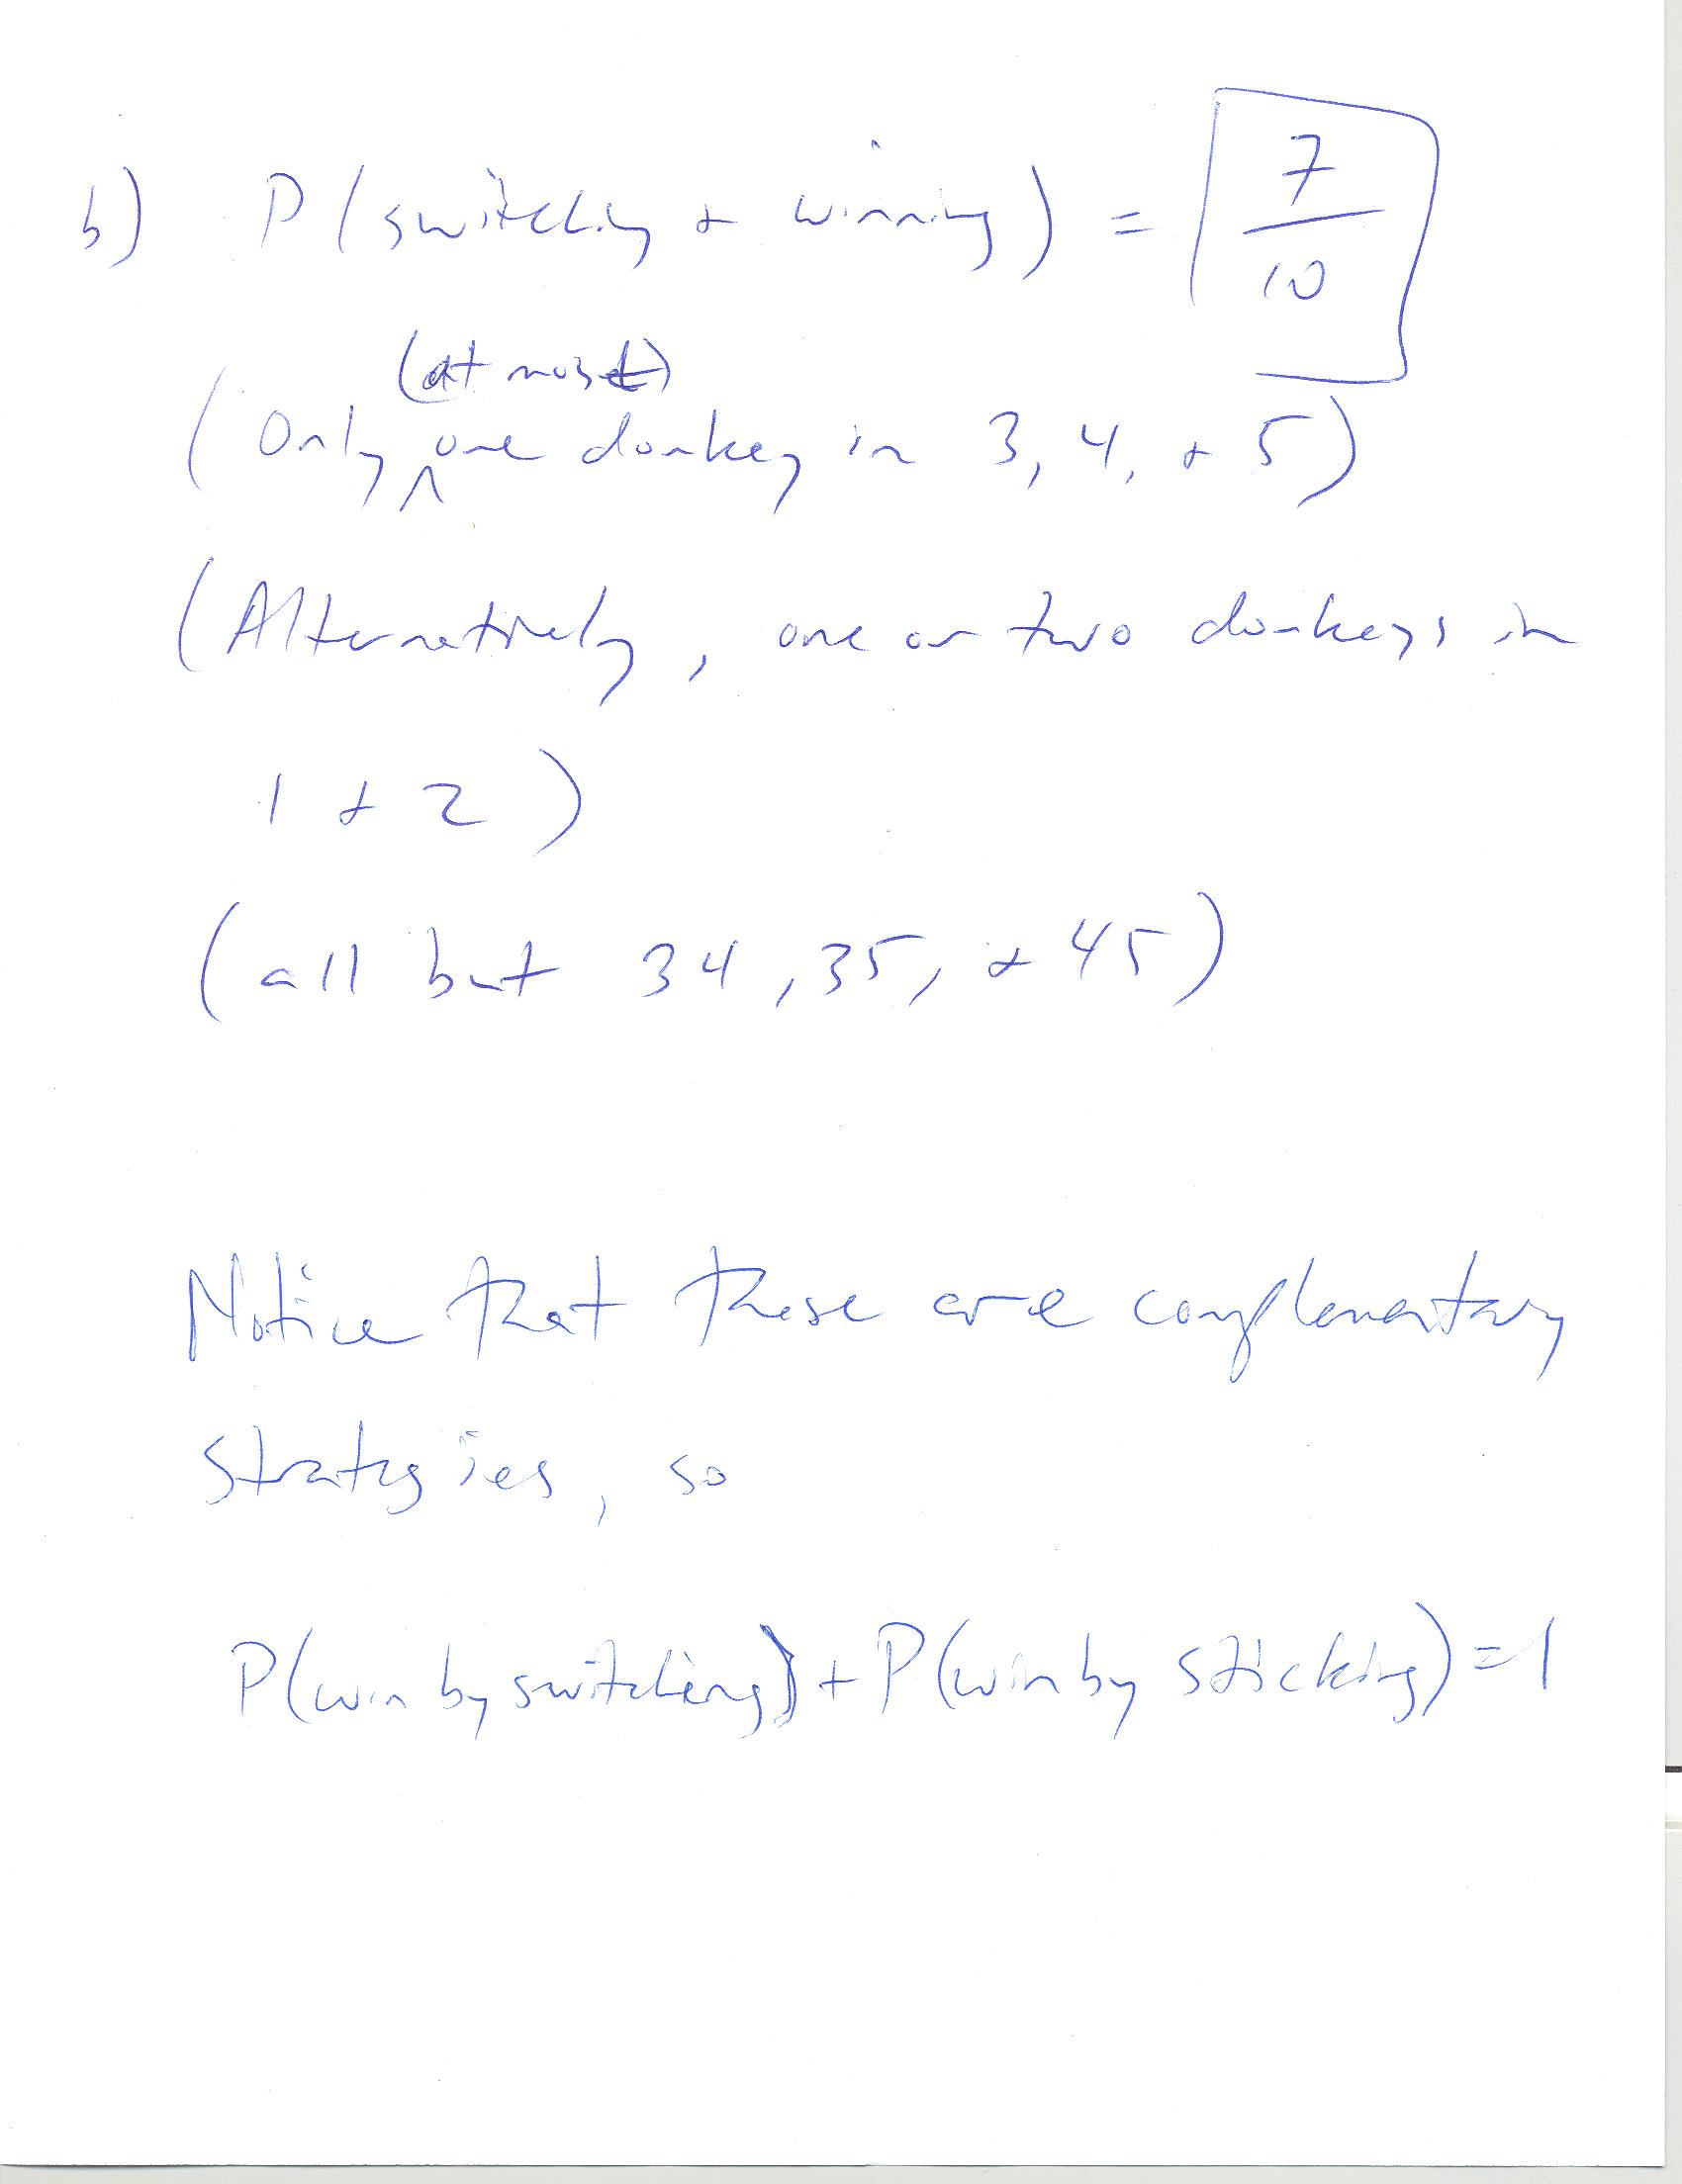 b) P(switching + winning) = 7/10
(at most)
(Only ^ one donkey in 3, 4, + 5)
(Alternatively, one or two donkeys in
1 + 2)
(all but 34, 35, + 45)
Notice that these are complementary
strategies, so
P(win by switching) + P(win by sticking) = 1